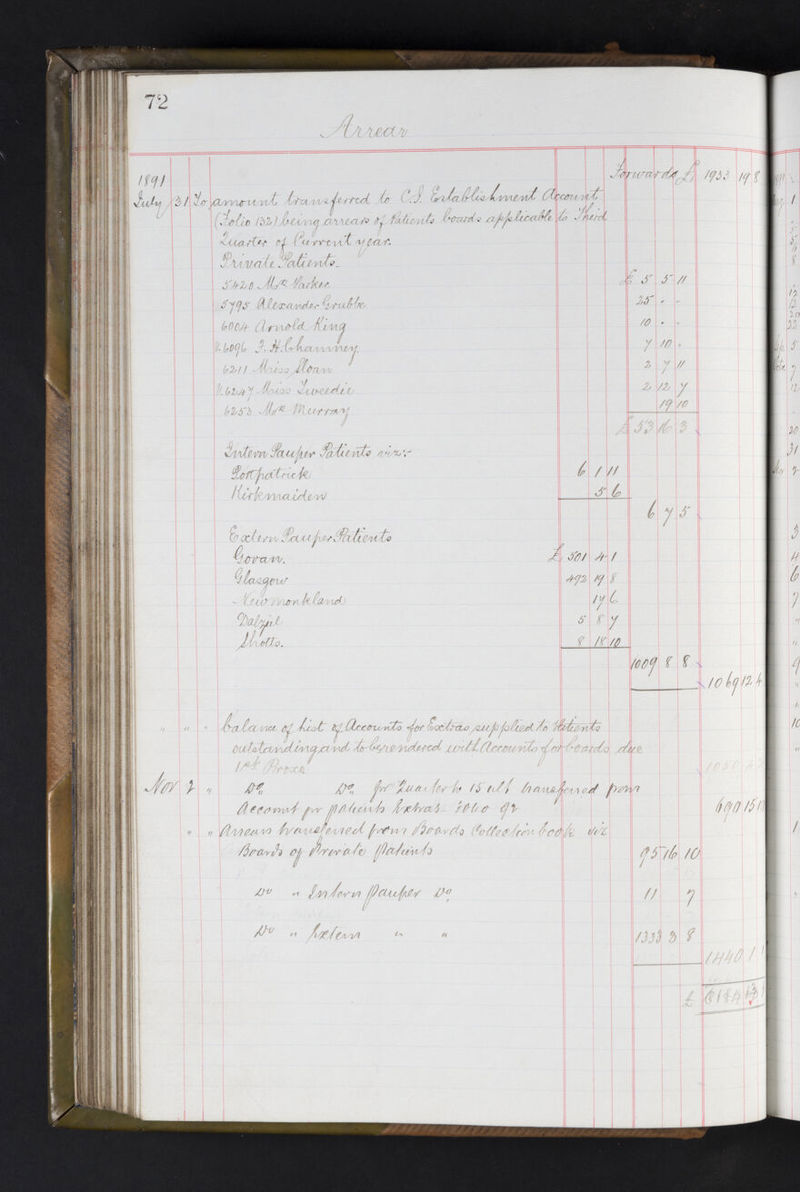 72
Arrear
1891 Forwards £ 1933 19 8
July 31 To amount transferred to C.I. Establishment Account
(Folio 132) being arrears of Patients boards applicable to Third
Quarter of Current year.
Private Patients.
5420 Mrs Parker £ 5 5 11
5795 Alexander Grubb 25 - -
6004 Arnold King 10 - -
6096 F. H. Chamney 7 10 -
6211 Miss Sloan 2 7 11
6247 Miss Tweedie 2 12 7
6253 Mrs Murray 19 10
£ 53 16 3
Intern Pauper Patients viz:-
Portpatrick 6 1 11
Kirkmaiden 5 6
6 7 5
Extern Pauper Patients
Govan. £ 501 4 1
Glasgow 492 19 8
New monkland 17 6
Dalziel 5 8 7
Shotts. 8 18 10
1009 8 8
1069 12 4
" " - balance of list of Accounts for Extras supplied to Patients
outstanding and to be rendered with Accounts for boards due
1st Proxo
Nov 2 " Do Do for Quarter to 15 ult transferred from
Account for patients Extras folio 92 690 15
" " Arrears transferred from Boards Collection book viz
Boards of Private Patients 95 16 10
Do " Intern Pauper Do 11 7
Do " Extern " " 1333 3 8
1440 1 1
£